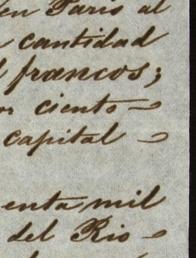 en Paris al
cantidad
francos;
ciento
capital
enta mil
del Rio